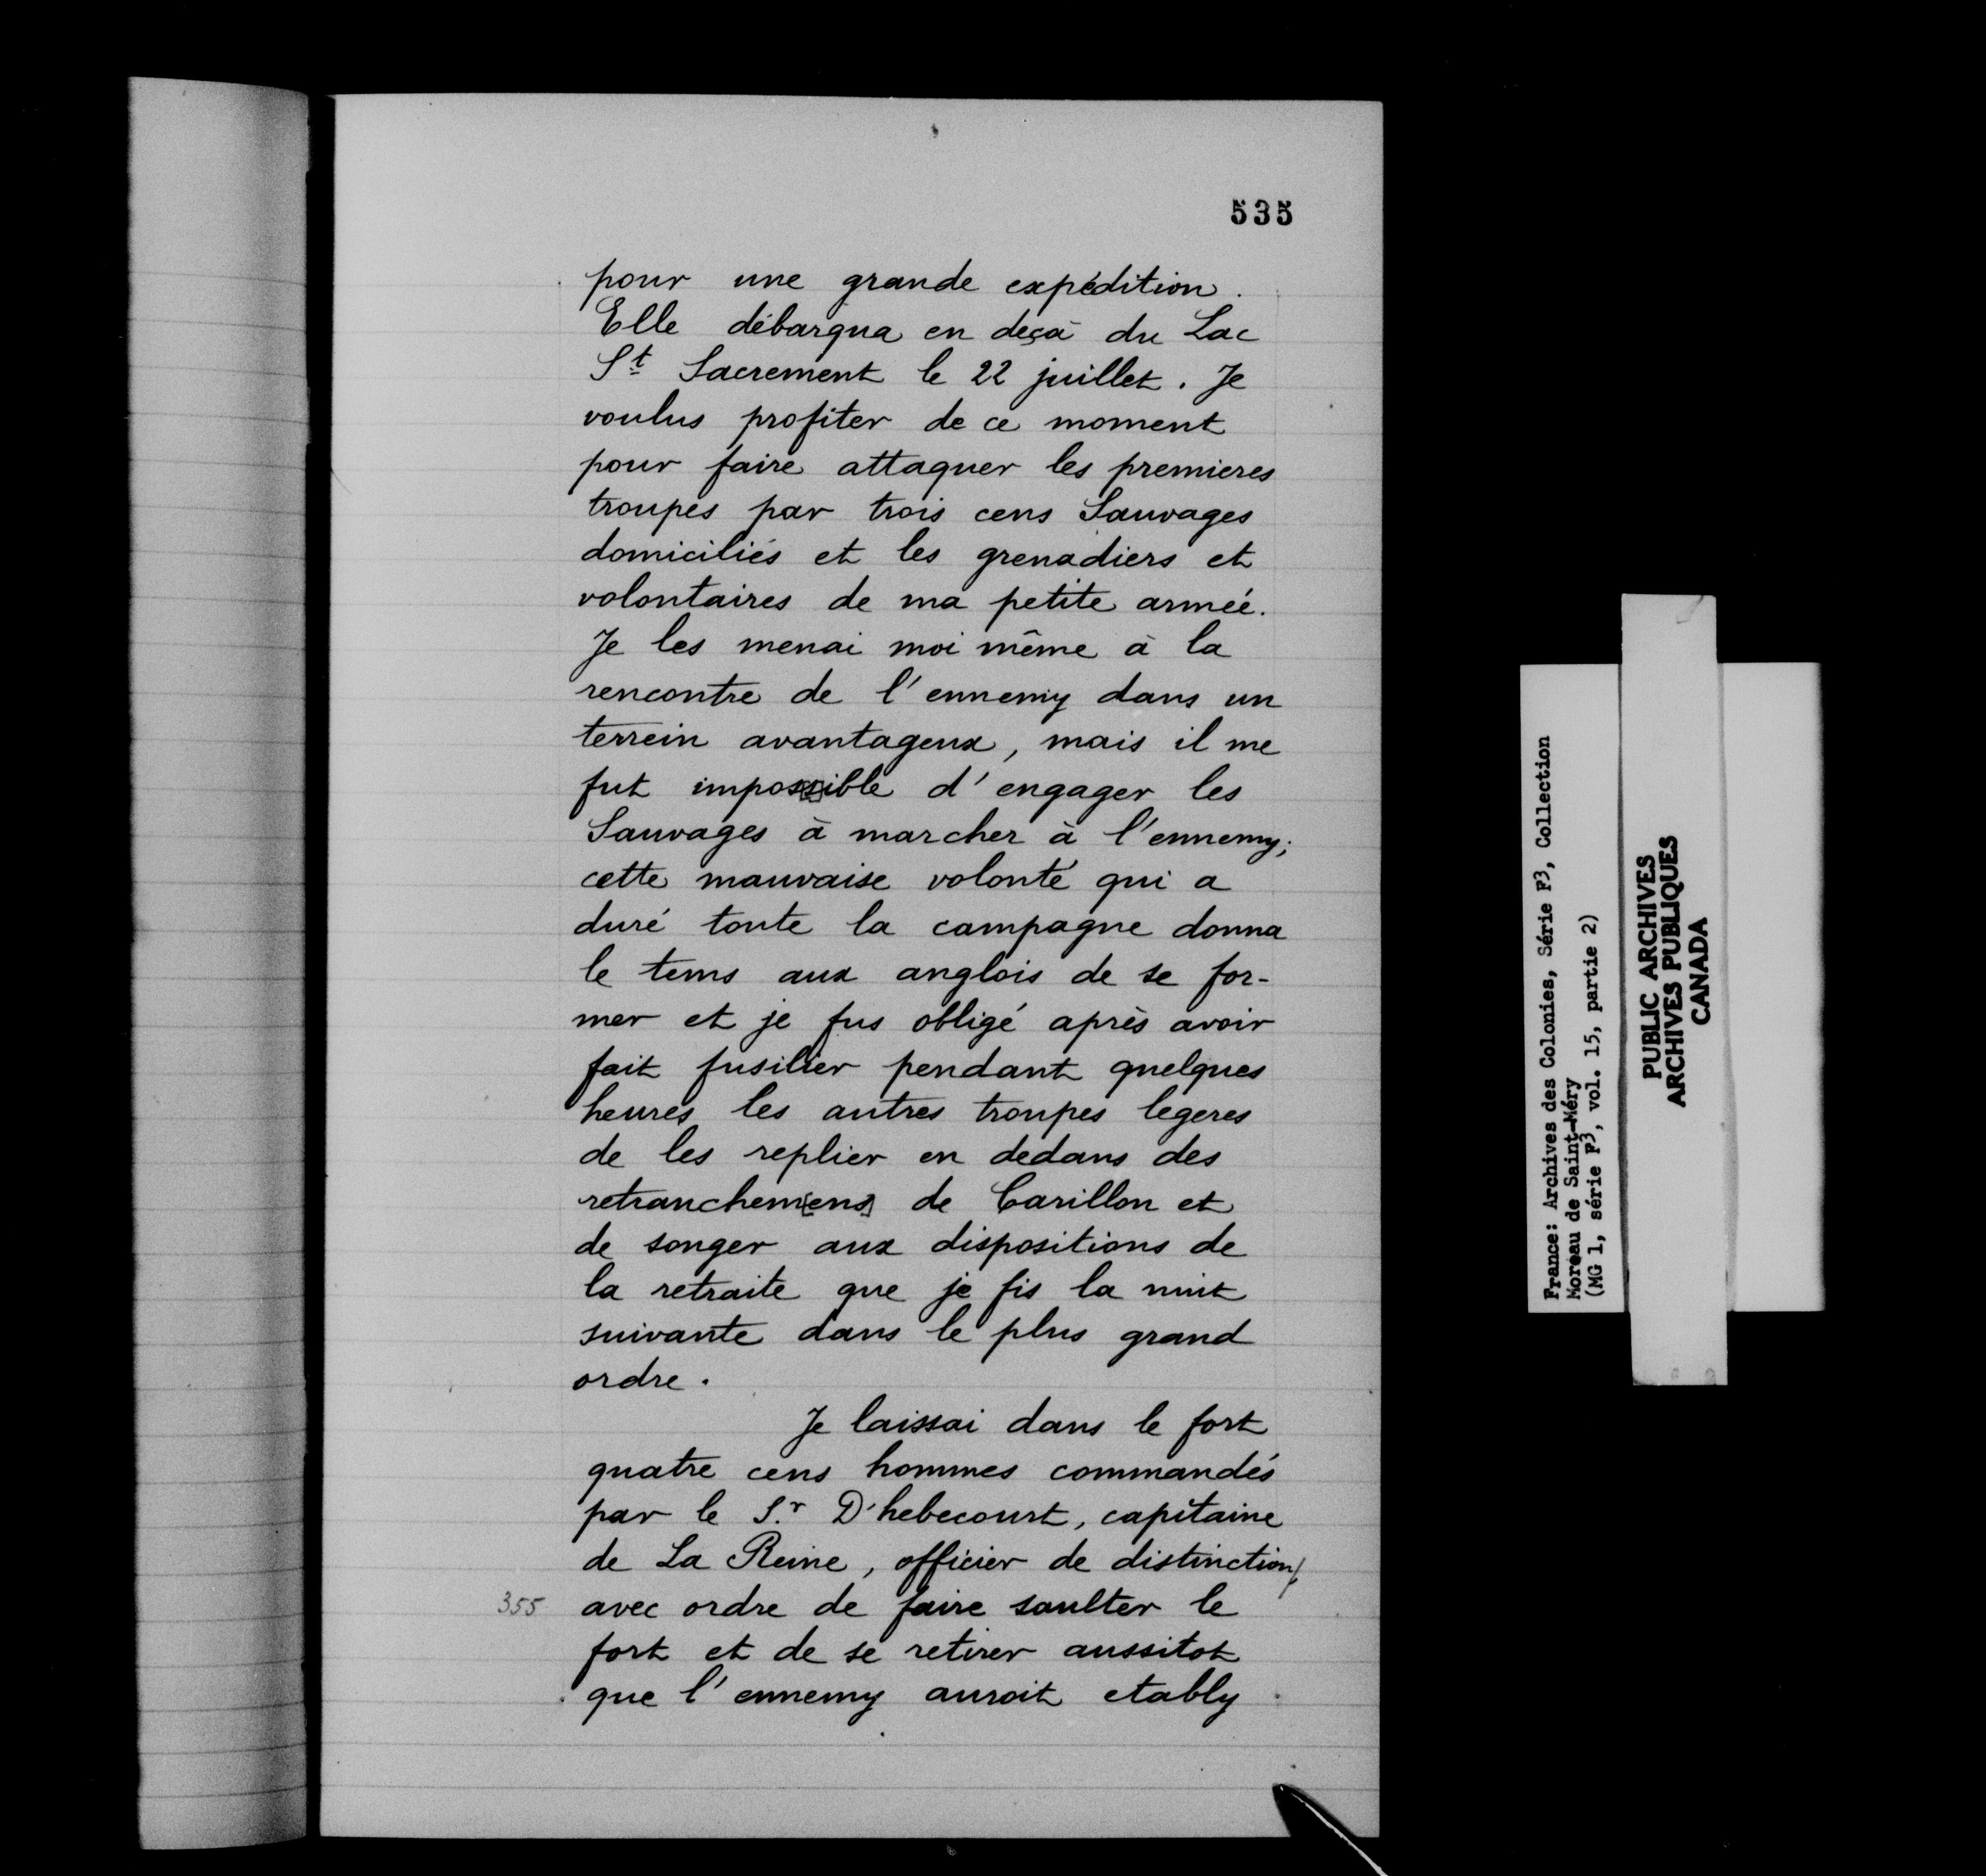 535
pour une grande expédition.
Elle débarqua en deçà du Lac
St Sacrement le 22 juillet. Je
voulus profiter de ce moment
pour faire attaquer les premieres
troupes par trois cens Sauvages
domiciliés et les grenadiers et
volontaires de ma petite armée.
Je les menai moi même à la
rencontre de l'ennemy dans un
terrein avantageux, mais il me
fut impossible d'engager les
Sauvages à marcher à l'ennemy;
cette mauvaise volonté qui a
duré toute la campagne donna
le tems aux anglois de se for-
mer et je fus obligé après avoir
fait fusilier pendant quelques
heures les autres troupes legeres
de les replier en dedans des
retranchem[ens] de Carillon et
de songer aux dispositions de
la retraite que je fis la nuit
suivante dans le plus grand
ordre.
Je laissai dans le fort
quatre cens hommes commandés
par le S.r D'hebecourt, capitaine
de La Reine, officier de distinction,
355 avec ordre de faire saulter le
fort et de se retirer aussitot
que l'ennemy auroit etably
France: Archives des Colonies, Série F3, Collection
Moreau de Saint-Méry
(MG 1, série F3, vol. 15, partie 2)
PUBLIC ARCHIVES
ARCHIVES PUBLIQUES
CANADA